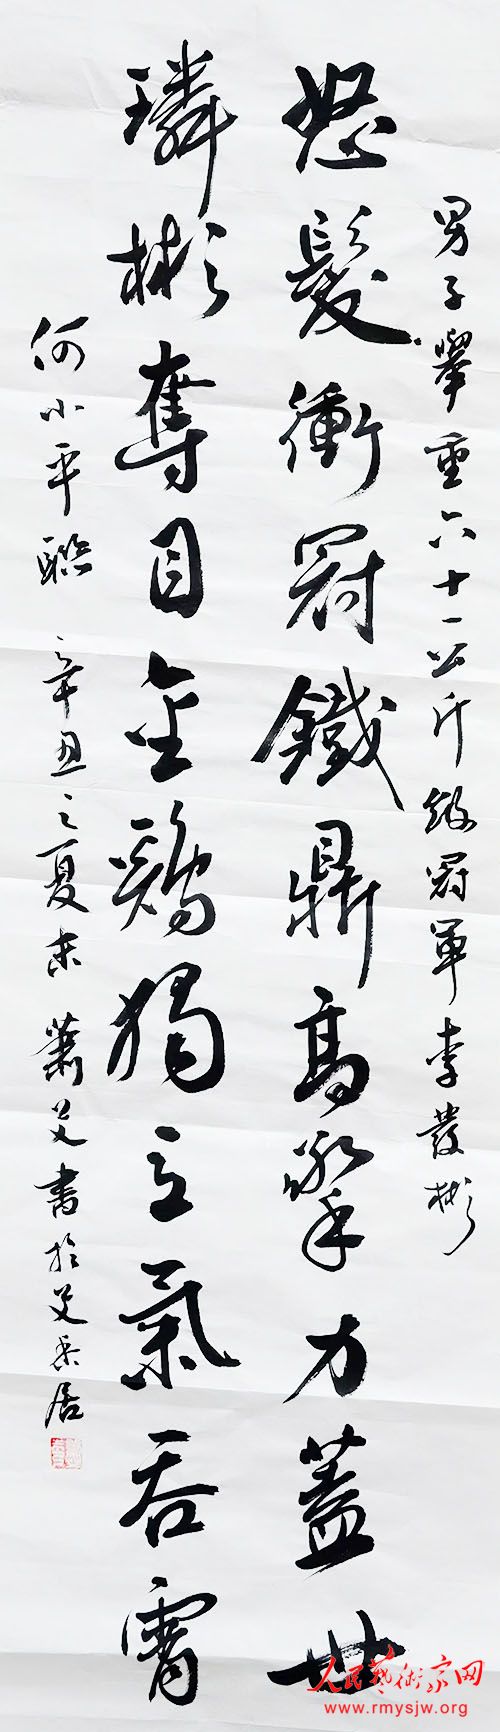 男子舉重六十一公斤級冠軍李發彬
怒髮衝冠鐵鼎高擎力蓋世
璘彬奪目金鷄獨立氣吞霄
何小平聯 辛丑之夏末 蕭艾書於艾采居
人民藝術家网
www.rmysjw.org